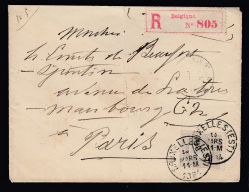 Belgique
R No 805
Monsieur
le Comte de Beaufort
Spontin
avenue de La Tour
Maubourg
Paris
BRUXELLES (EST)
MARS
11-M
BRUXELLES (EST)
MARS
11-M